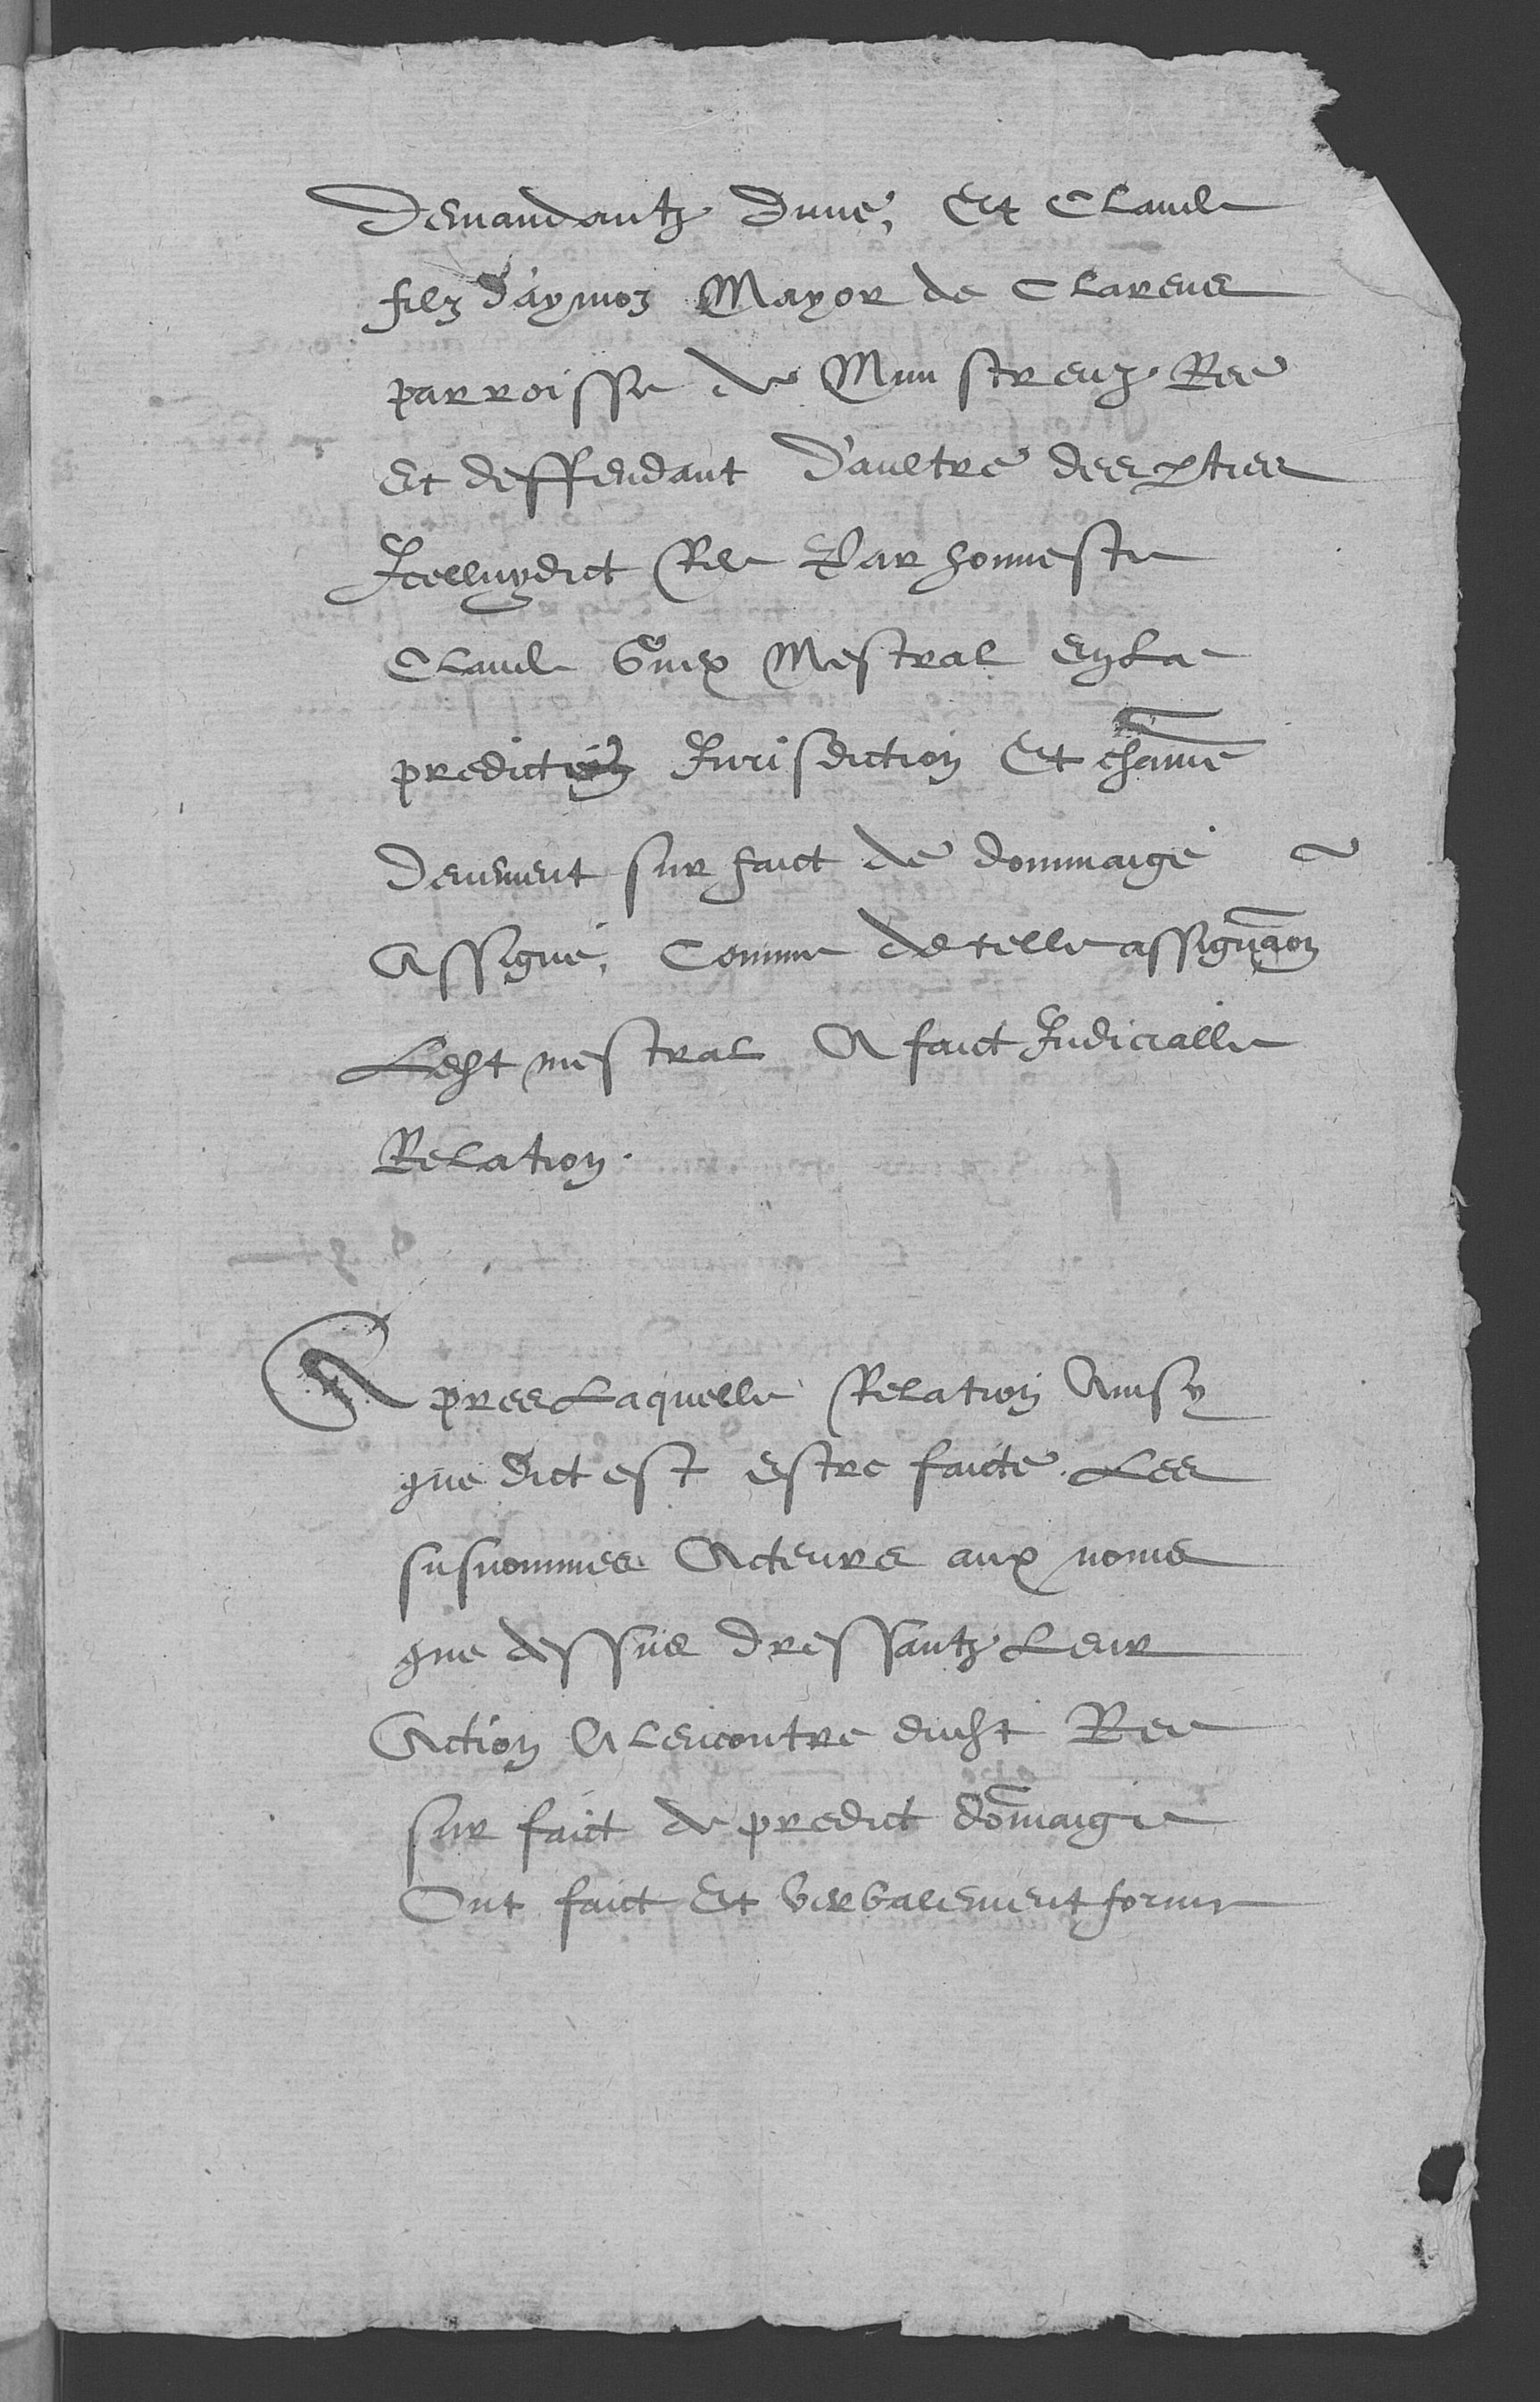 Demandantz dune, Et Claude
filz d'aymoz Mayor de Clarens
parroisse de Munstreuz Ree
Et deffendant d'aultre des pties
Icelluydict Ree Par honneste
Claude Mestral en La
predicte Jurisdiction Et
Deuement sur faict de dommaige
Assigné, Comme de telle assignaon
Ledt mestral A faict Judicialle
Relation.
Apres Laquelle Relation Ainsy
que dict est estre faicte. Les
susnommes Acteurs aux noms
que dessus dressantz Leur
Action A lencontre dudt Ree
sur faict de predict domaige
Ont faict Et verbalement forme